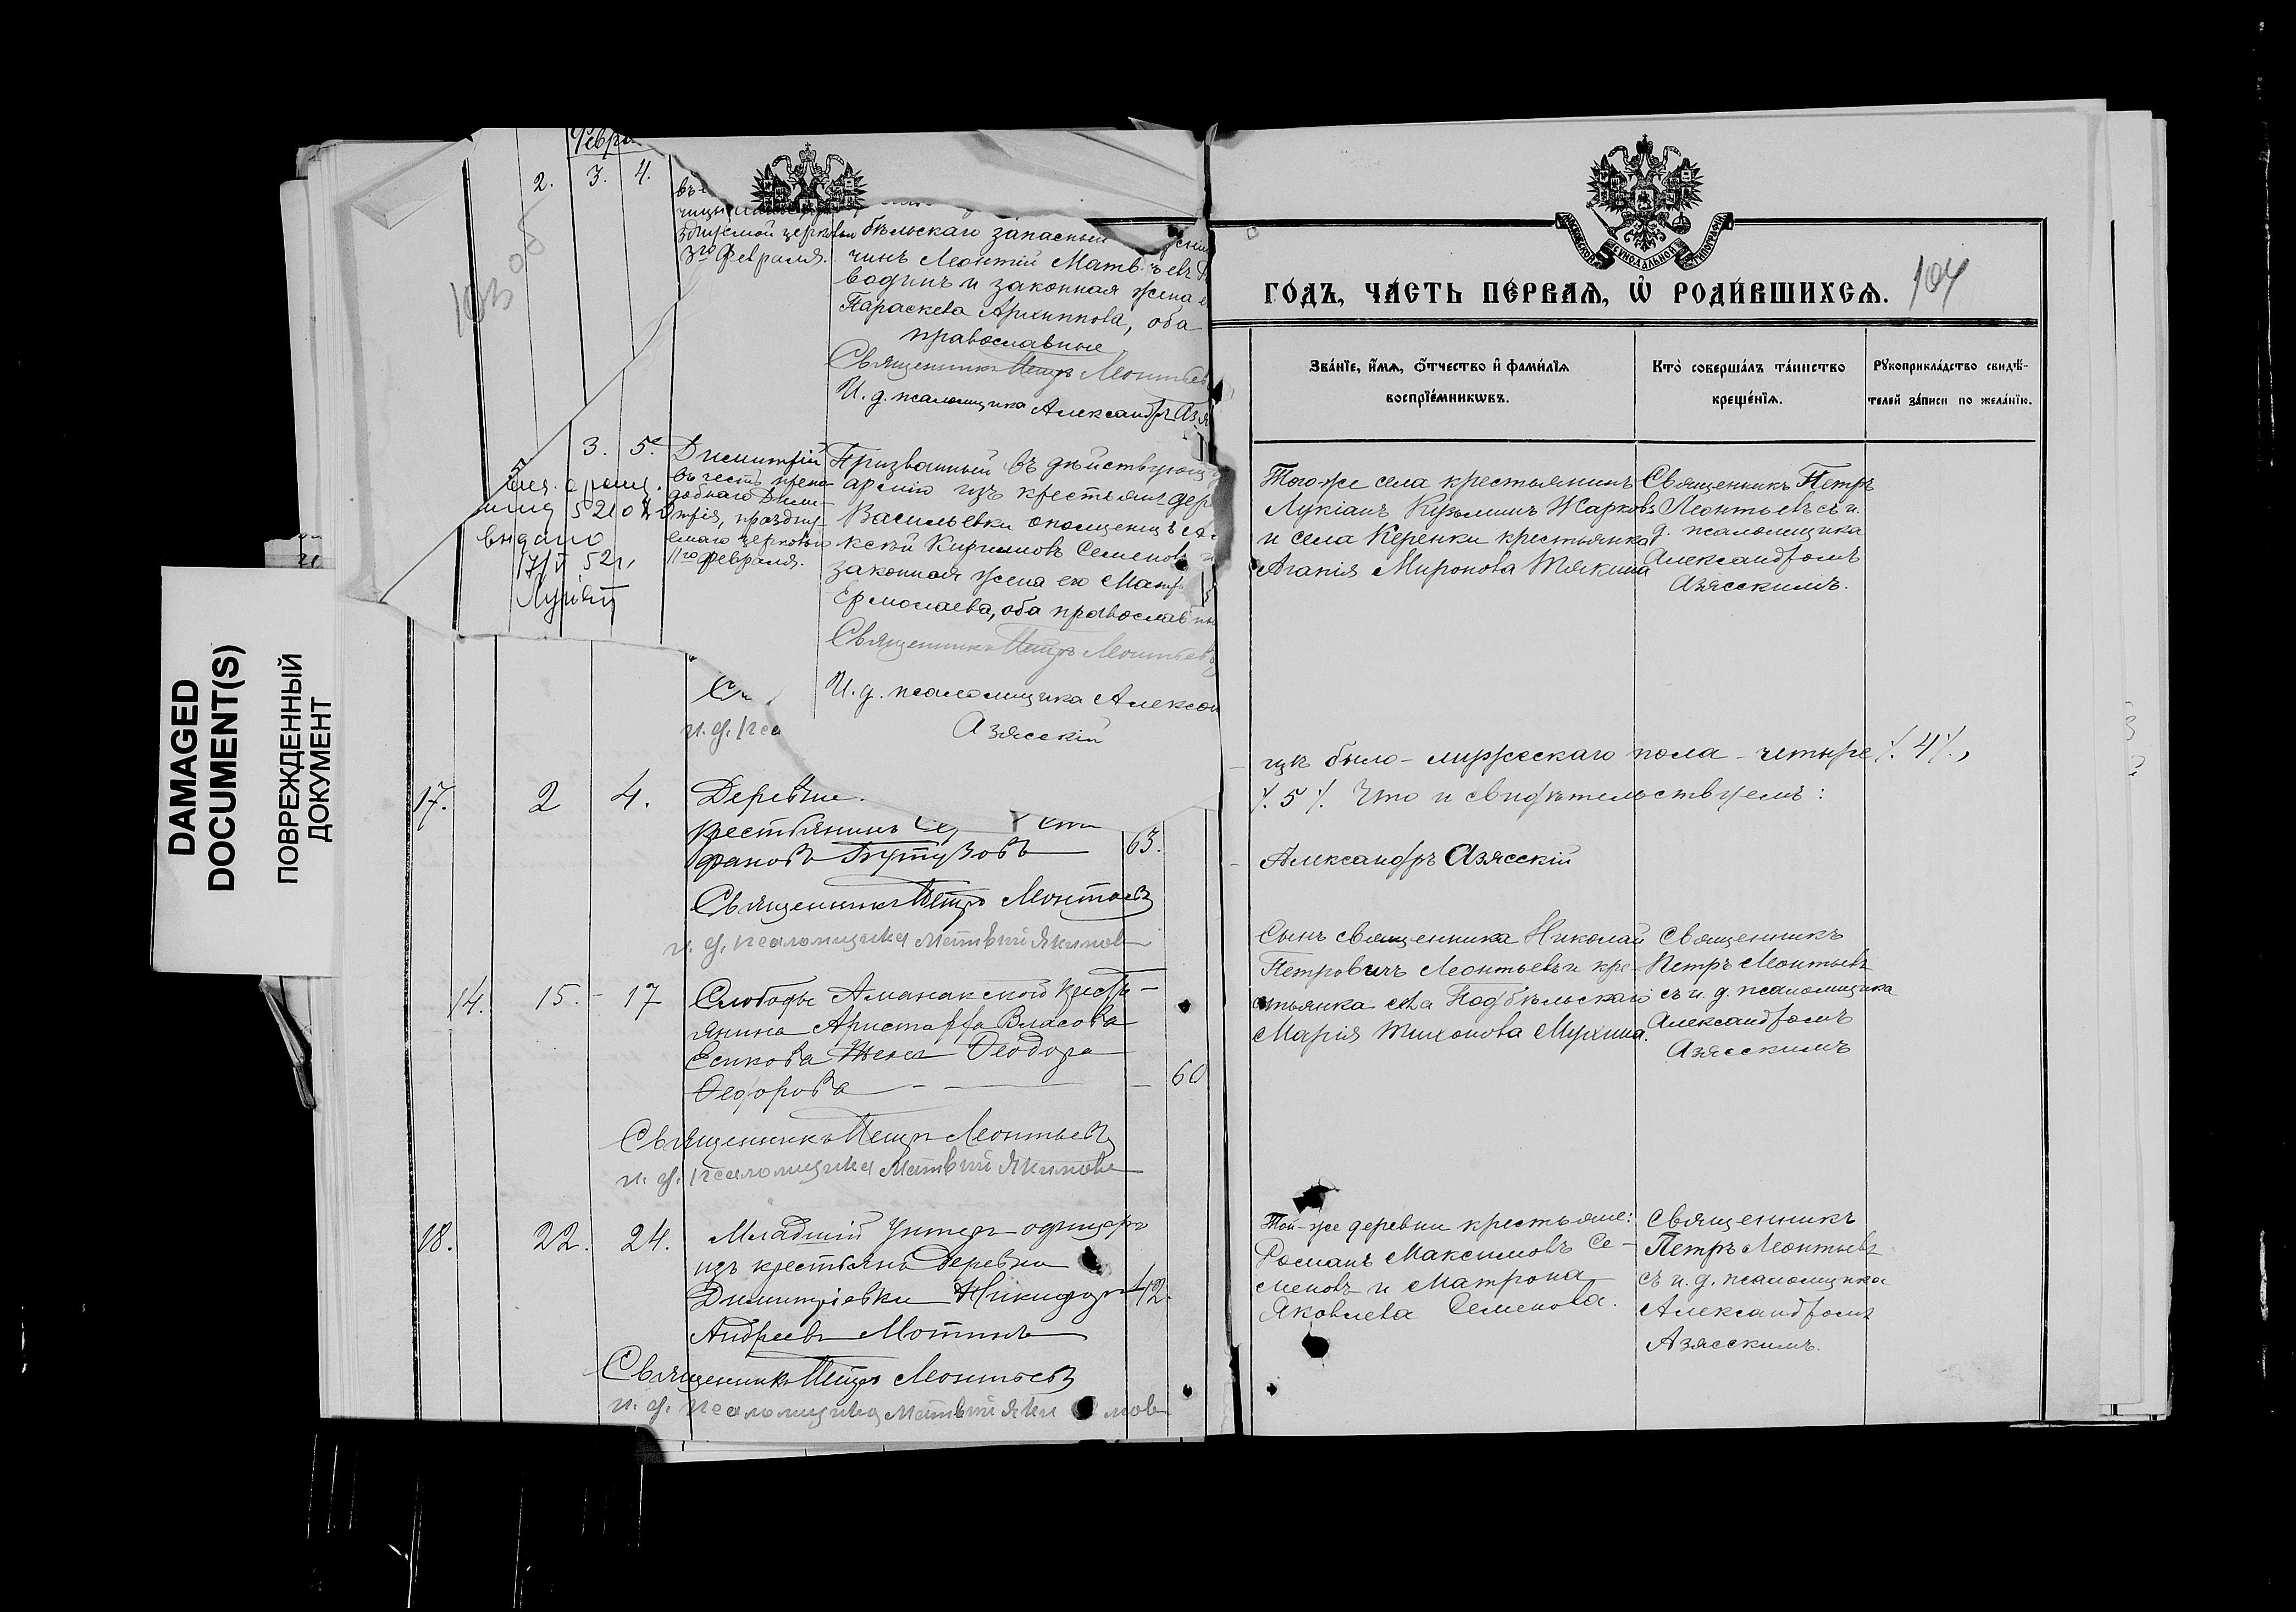 DAMAGED
DOCUMENT(S)
ПОВРЕЖДЕННЫЙ
ДОКУМЕНТ
2. 3. 4.
3го Февраля.
бѣльскаго запасный
чинъ Леонтій Матв
водинъ и законная жена
Параскева Архиппова, оба
православные
Священникъ Петръ Леонтьев
И. д. псаломщика Александръ Аз
3. 5.
Димитрій
въ честь препо-
добнаго Дими-
трія, праздну-
емаго церковью
11го февраля.
выдано
Призванный въ дѣйствующ
армію изъ крестьянъ дер
Васильевки ополченецъ
Кирилловъ Семеновъ
законная жена его Матр
Ермолаева, оба православны
Священникъ Петръ Леонтьевъ
И. д. псаломщика Алексан
Азясскій
17. 2 4.
Деревни
крестьянинъ
фановъ Бутузовъ 63.
Священникъ Петръ Леонтьевъ
и. д. псаломщика Матвій Якимовъ
14. 15. - 17
Слободы Аманакской крестья-
янина Аристарха Власова
Есикова Жена Ѳеодора
Ѳедорова 60
Священникъ Петръ Леонтьевъ
и. д. псаломщика Матвій Якимовъ
18. 22. 24.
Младшій Унтеръ-офицеръ
изъ крестьянъ Деревни
Димитріевки Никифоръ 42.
Андреевъ Мотинъ
Священникъ Петръ Леонтьевъ
и. д. псаломщика Матвій Якимовъ
МОСКОВСКОЙ СѴНОДАЛЬНОЙ ТИПОГРАФІИ
ГО́ДЪ, ЧА́СТЬ ПЕ́РВАѦ, Ѡ҆ РОДИ́ВШИХСѦ. 104
Зва́нїе, и҆́мѧ, ѻ҆́тчество и҆ фами́лїѧ
воспрїе́мникѡвъ.
Кто̀ соверша́лъ та́инство
креще́нїѧ.
Рꙋкоприкла́дство свидѣ́-
телей за́писи по жела́нїю.
Того-же села крестьянинъ
Лукіанъ Кузьминъ Жарковъ
и села Керенки крестьянка
Агапія Миронова Тяжкина
Священникъ Петръ
Леонтьевъ съ и.
д. псаломщика
Александромъ
Азясскимъ.
было - мужескаго пола - четыре ٪ 4 ٪,
٪ 5 ٪ Что и свидѣтельствуемъ:
Александръ Азясскій
Сынъ священника Николай
Петровичъ Леонтьевъ и кре-
стьянка села Подбѣльскаго
Марія Тихонова Мухина.
Священникъ
Петръ Леонтьевъ
съ и. д. псаломщика
Александромъ
Азясскимъ
Той-же деревни крестьяне:
Романъ Максимовъ Се-
меновъ и Матрона
Яковлева Семенова.
Священникъ
Петръ Леонтьевъ
съ и. д. псаломщика
Александромъ
Азясскимъ.